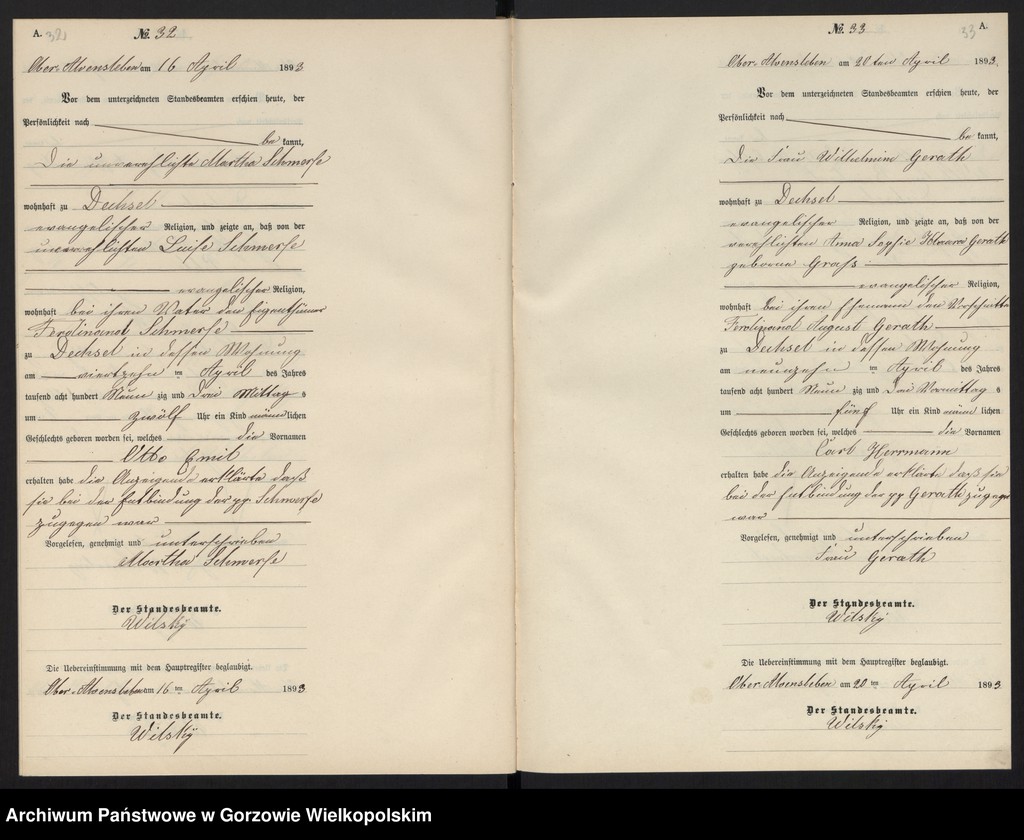 A. 32
№. 32
Ober-Alvensleben am 16 April 1893
Vor dem unterzeichneten Standesbeamten erschien heute, der
Persönlichkeit nach
be kannt,
Die unverehlichte Martha Schmerse
wohnhaft zu Dechsel
evangelischer Religion, und zeigte an, daß von der
unverehlichten Luise Schmerse
evangelischer Religion,
wohnhaft bei ihren Vater den Eigenthümer
Ferdinand Schmerse
zu Dechsel in dessen Wohnung
am vierzehn ten April des Jahres
tausend acht hundert Neun zig und Drei Mittag s
um zwölf Uhr ein Kind männ lichen
Geschlechts geboren worden sei, welches die Vornamen
Otto Emil
erhalten habe die Anzeigende erklärte daß
sie bei der Entbindung der pp. Schmerse
zugegen war
Vorgelesen, genehmigt und unterschrieben
Martha Schmerse
Der Standesbeamte.
Wilsky
Die Uebereinstimmung mit dem Hauptregister beglaubigt.
Ober-Alvensleben am 16 ten April 1893
Der Standesbeamte.
Wilsky
№. 33
33 A.
Ober-Alvensleben am 20 ten April 1893.
Vor dem unterzeichneten Standesbeamten erschien heute, der
Persönlichkeit nach
be kannt,
Die Frau Wilhelmine Gerath
wohnhaft zu Dechsel
evangelischer Religion, und zeigte an, daß von der
verehlichten Anna Sophie Gerath
geborne Grafs
evangelischer Religion,
wohnhaft bei ihren Ehemann den Vorschnitter
Ferdinand August Gerath
zu Dechsel in dessen Wohnung
am neunzehn ten April des Jahres
tausend acht hundert Neun zig und Drei Vormittag s
um fünf Uhr ein Kind männ lichen
Geschlechts geboren worden sei, welches die Vornamen
Carl Herrmann
erhalten habe die Anzeigende erklärte daß sie
bei der Entbindung der pp Gerath zugegen
war
Vorgelesen, genehmigt und unterschrieben
Frau Gerath
Der Standesbeamte.
Wilsky
Die Uebereinstimmung mit dem Hauptregister beglaubigt.
Ober-Alvensleben am 20 ten April 1893
Der Standesbeamte.
Wilsky
Archiwum Państwowe w Gorzowie Wielkopolskim